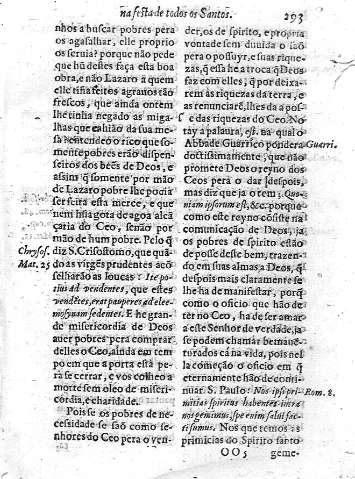 na festa de todos os Santos.
293
nhos a buscar pobres pera
os agasalhar, elle proprio
os seruia? porque não pede
que hũ destes faça esta boa
obra, e não Lazaro a quem
elle tinha feitos agrauos tão
frescos, que ainda ontem
lhe tinha negado as miga-
lhas que cahião da sua me-
sa? entendeo o rico que so-
mente pobres erão dispen-
seiros dos bẽes de Deos, e
assim q̃ somente por mão
de Lazaro pobre lhe podia
ser feita esta merce, e que
nem hũa gota de agoa alcã
çaria do Ceo, senão por
mão de hum pobre. Pelo q̃
diz S. Crisostomo, que quã-
do as virgẽs prudentes acõ
selharão as loucas: Ite po-
tius ad vendentes, que estes
vendẽtes, erat pauperes ad elee-
mosynam sedentes. E he gran-
de misericordia de Deos
auer pobres pera comprar
delles o Ceo, ainda em tem
po em que a porta está pe-
ra se cerrar, e vos colheo a
morte sem oleo de miseri-
cordia, e charidade.
Pois se os pobres de ne-
cessidade se saõ como se-
nhores do Ceo pera o ven-
Chrysos.
Mat. 25
der, os de spirito, e propria
vontade sem duuida o saõ
pera o possuyr, e suas rique-
zas, q̃ essa he a troca q̃ Deos
faz com elles, q̃ por deixa-
rem as riquezas da terra, e
as renunciarẽ, lhes da a pos-
se das riquezas do Ceo. No
tay a palaura, est. na qual o
Abbade Guarrico pondera
doctissimamente, que não
promete Deos o reyno dos
Ceos pera o dar despois,
mas diz que ja o tem: Quo-
niam ipsorum est, &c. porque
como este reyno cõsiste na
comunicação de Deos, ja
os pobres de spirito estão
de posse deste bem, trazen-
do em suas almas a Deos, q̃
despois mais claramente se
lhe ha de manifestar, porq̃
como o oficio que hão de
ter no Ceo, ha de ser amar
a este Senhor de verdade, ja
se podem chamar bemauen-
turados cá na vida, pois nel
la começão o oficio em q̃
eternamente hão de conti-
nuar. S. Paulo: Nos ipsi pri-
mitias spiritus habentes intra
nos gemimus, spe enim salui fac-
ti sumus. Nos que temos as
primicias do Spirito santo
Guerri.
Rom. 8.
OO5
geme-